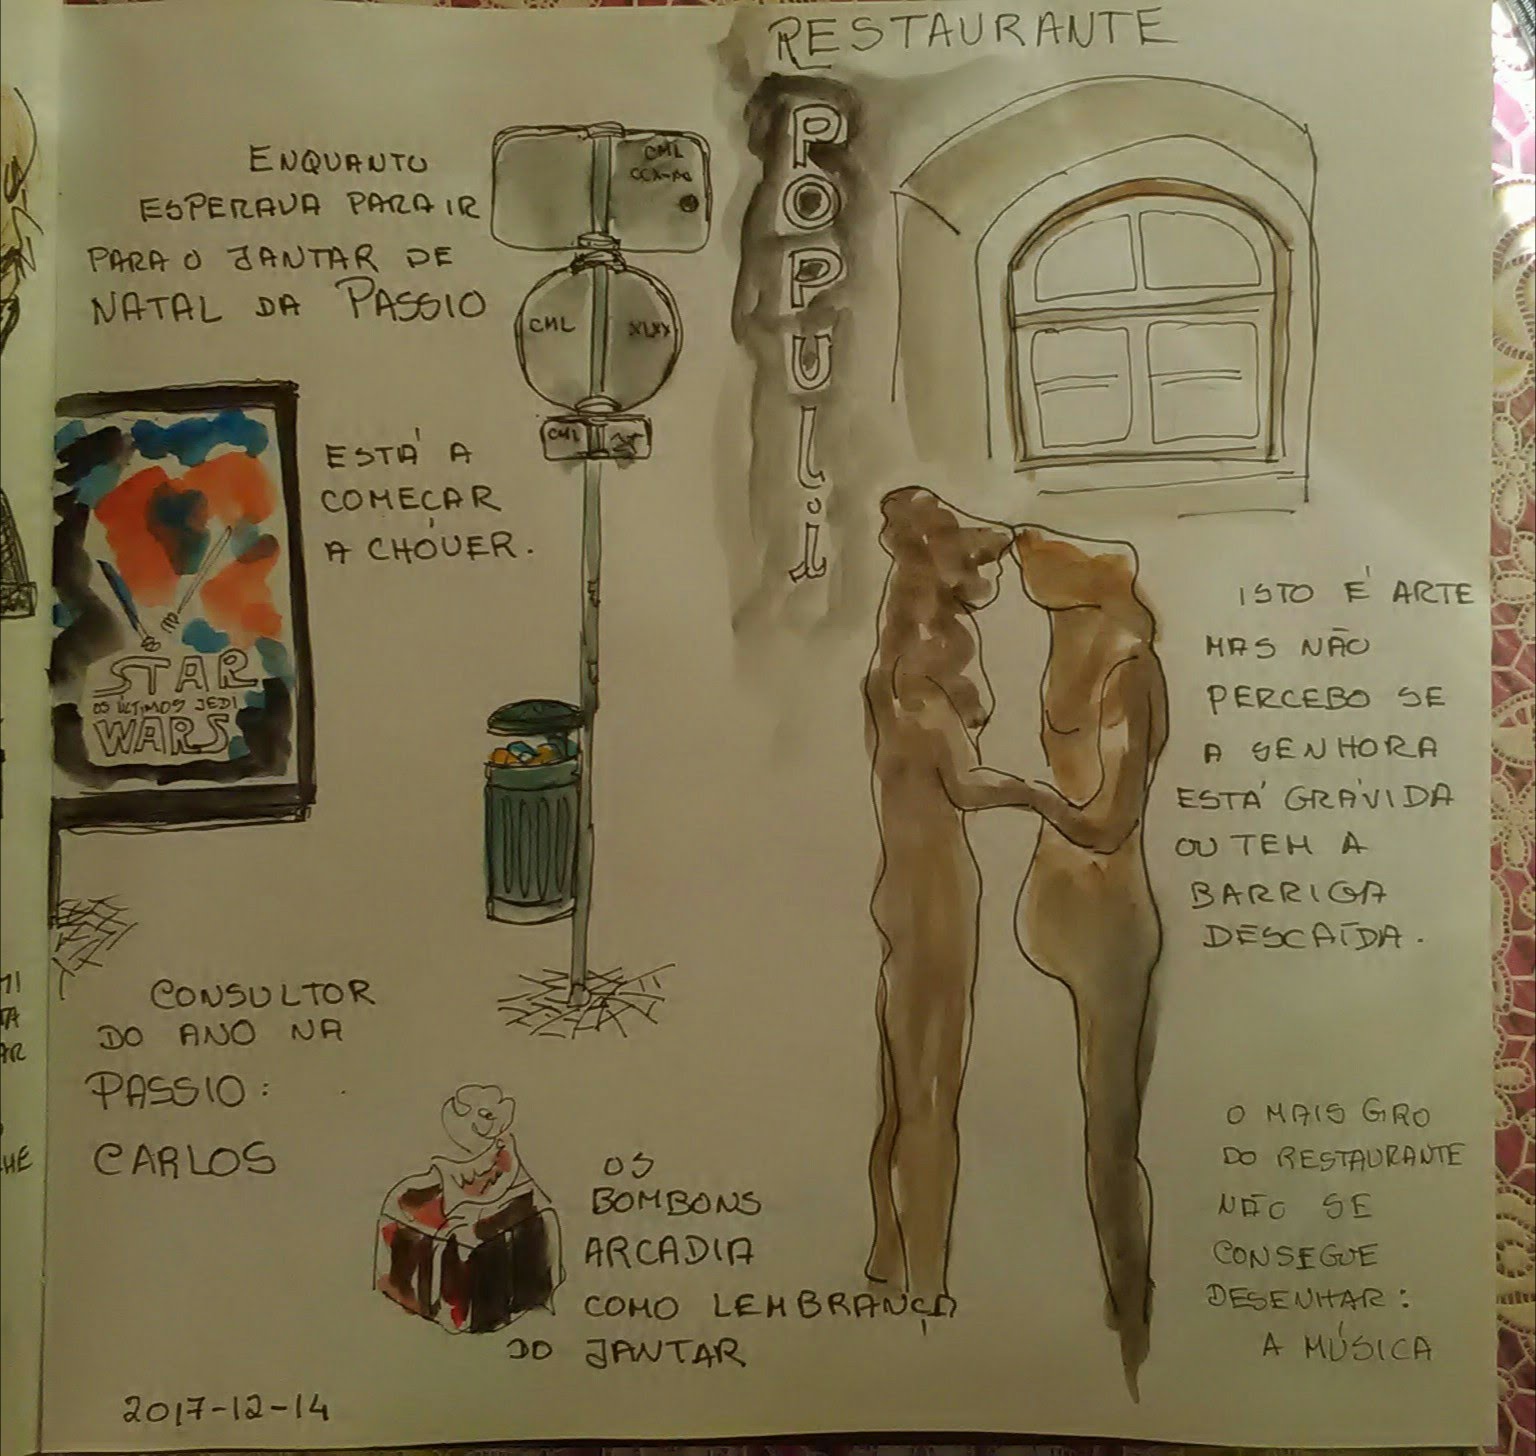 RESTAURANTE
POPULI
ENQUANTO
ESPERAVA PARA IR
PARA O JANTAR DE
NATAL DA PASSIO
CML
CML
CML
ESTÁ A
COMEÇAR
A CHOVER.
STAR
OS ÚLTIMOS JEDI
WARS
ISTO É ARTE
MAS NÃO
PERCEBO SE
A SENHORA
ESTÁ GRÁVIDA
OU TEM A
BARRIGA
DESCAÍDA.
CONSULTOR
DO ANO NA
PASSIO:
CARLOS
OS
BOMBONS
ARCADIA
COMO LEMBRANÇA
DO JANTAR
O MAIS GIRO
DO RESTAURANTE
NÃO SE
CONSEGUE
DESENHAR:
A MÚSICA
2017-12-14